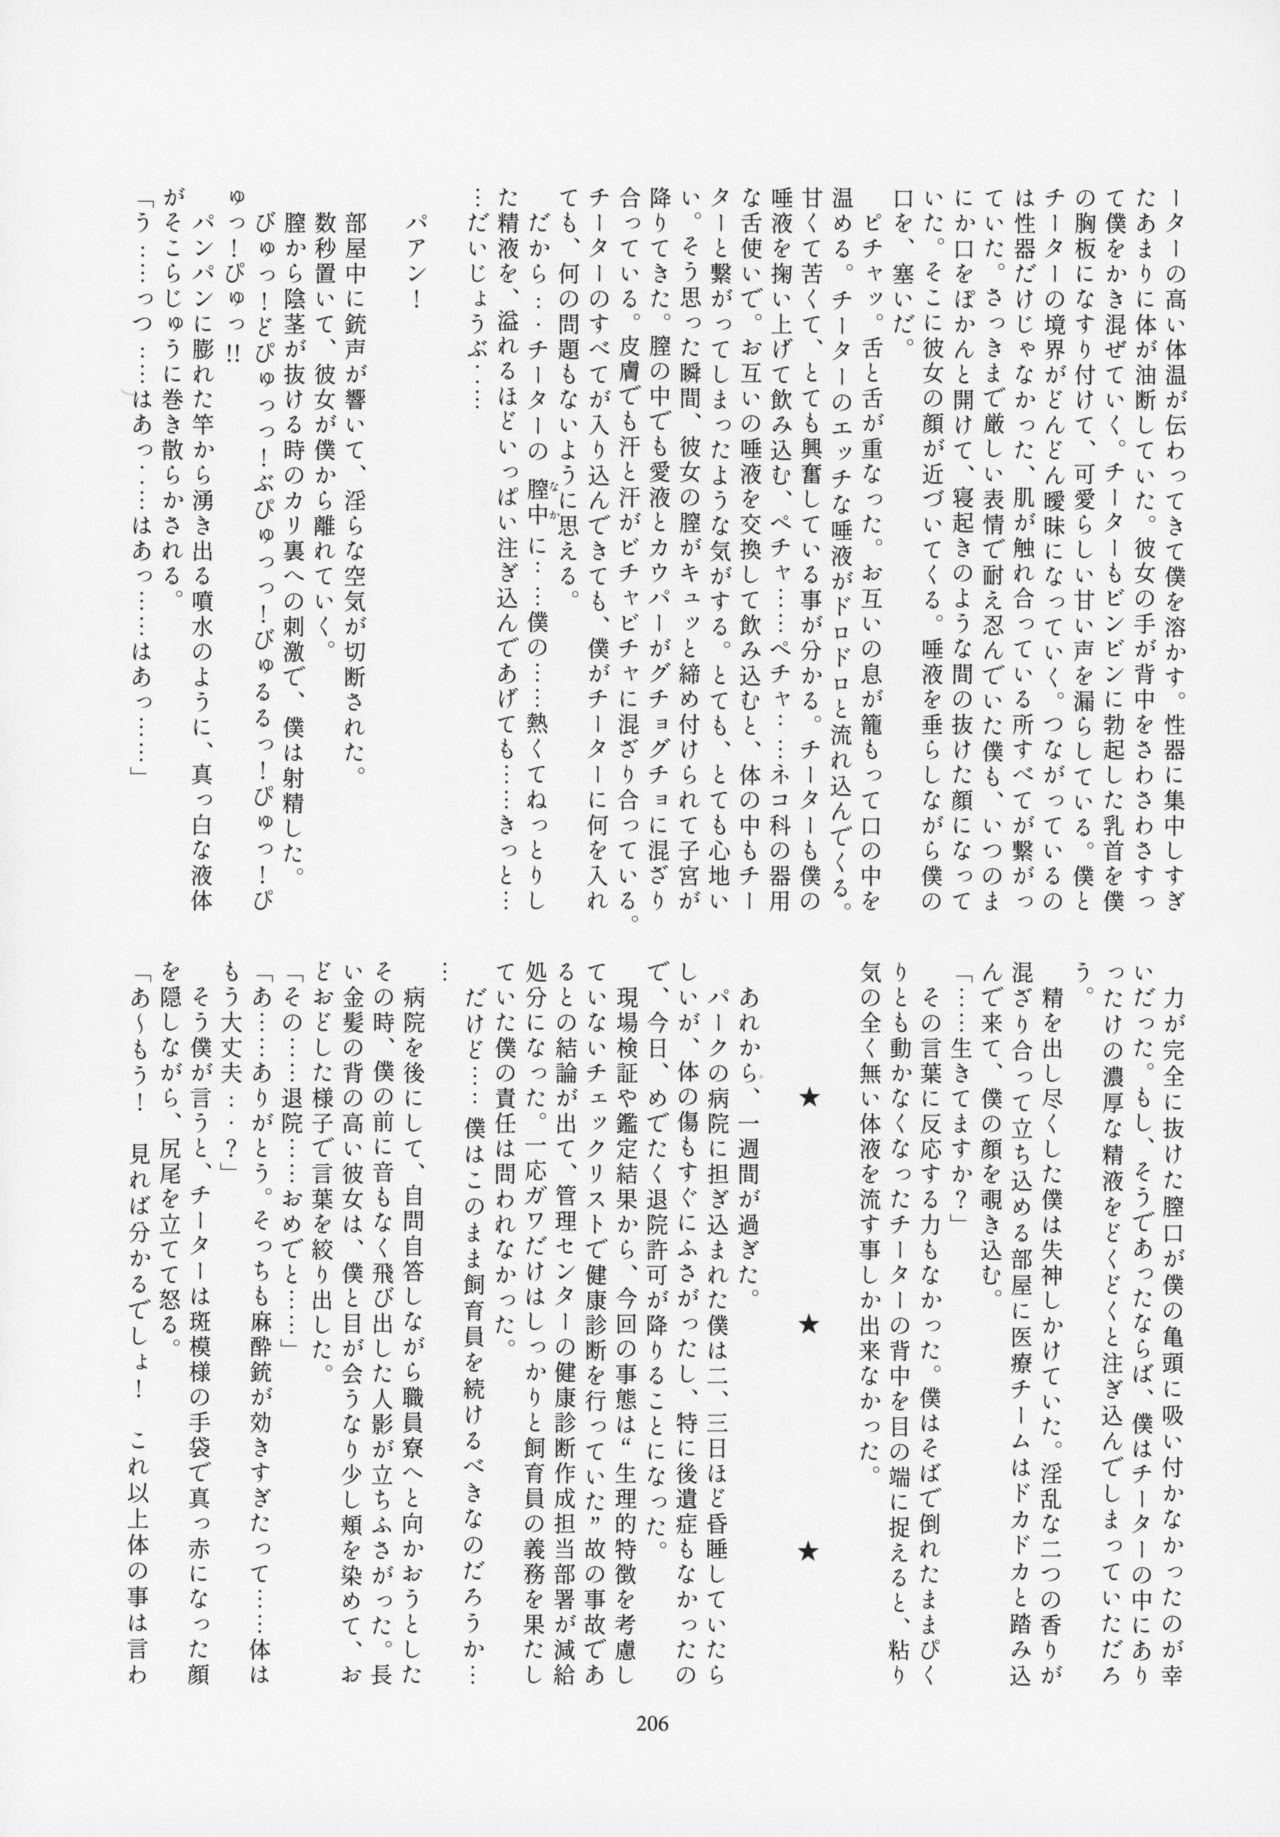 ーターの高い体温が伝わってきて僕を溶かす。性器に集中しすぎ
たあまりに体が油断していた。彼女の手が背中をさわさわさすっ
て僕をかき混ぜていく。チーターもビンビンに勃起した乳首を僕
の胸板になすり付けて、可愛らしい甘い声を漏らしている。僕と
チーターの境界がどんどん曖昧になっていく。つながっているの
は性器だけじゃなかった、肌が触れ合っている所すべてが繋がっ
ていた。さっきまで厳しい表情で耐え忍んでいた僕も、いつのま
にか口をぽかんと開けて、寝起きのような間の抜けた顔になって
いた。そこに彼女の顔が近づいてくる。唾液を垂らしながら僕の
口を、塞いだ。
ピチャッ。舌と舌が重なった。お互いの息が籠もって口の中を
温める。チーターのエッチな唾液がドロドロと流れ込んでくる。
甘くて苦くて、とても興奮している事が分かる。チーターも僕の
唾液を掬い上げて飲み込む、ペチャ……ペチャ……ネコ科の器用
な舌使いで。お互いの唾液を交換して飲み込むと、体の中もチー
ターと繋がってしまったような気がする。とても、とても心地い
い。そう思った瞬間、彼女の膣がキュッと締め付けられて子宮が
降りてきた。膣の中でも愛液とカウパーがグチョグチョに混ざり
合っている。皮膚でも汗と汗がビチャビチャに混ざり合っている。
チーターのすべてが入り込んできても、僕がチーターに何を入れ
ても、何の問題もないように思える。
だから…・チーターの膣中（なか）に……僕の……熱くてねっとりし
た精液を、溢れるほどいっぱい注ぎ込んであげても……きっと…
…だいじょうぶ……
パアン！
部屋中に銃声が響いて、淫らな空気が切断された。
数秒置いて、彼女が僕から離れていく。
膣から陰茎が抜ける時のカリ裏への刺激で、僕は射精した。
びゅっ！どぴゅっっ！ぶぴゅっっ！びゅるるっ！ぴゅっ！ぴ
ゅっ！ぴゅっ!!
パンパンに膨れた竿から湧き出る噴水のように、真っ白な液体
がそこらじゅうに巻き散らかされる。
「う……っつ……はあっ……はあっ……はあっ……」
力が完全に抜けた膣口が僕の亀頭に吸い付かなかったのが幸
いだった。もし、そうであったならば、僕はチーターの中にあり
ったけの濃厚な精液をどくどくと注ぎ込んでしまっていただろ
う。
精を出し尽くした僕は失神しかけていた。淫乱な二つの香りが
混ざり合って立ち込める部屋に医療チームはドカドカと踏み込
んで来て、僕の顔を覗き込む。
「……生きてますか？」
その言葉に反応する力もなかった。僕はそばで倒れたままぴく
りとも動かなくなったチーターの背中を目の端に捉えると、粘り
気の全く無い体液を流す事しか出来なかった。
★ ★ ★
あれから、一週間が過ぎた。
パークの病院に担ぎ込まれた僕は二、三日ほど昏睡していたら
しいが、体の傷もすぐにふさがったし、特に後遺症もなかったの
で、今日、めでたく退院許可が降りることになった。
現場検証や鑑定結果から、今回の事態は“生理的特徴を考慮し
ていないチェックリストで健康診断を行っていた”故の事故であ
るとの結論が出て、管理センターの健康診断作成担当部署が減給
処分になった。一応ガワだけはしっかりと飼育員の義務を果たし
ていた僕の責任は問われなかった。
だけど……僕はこのまま飼育員を続けるべきなのだろうか…
…
病院を後にして、自問自答しながら職員寮へと向かおうとした
その時、僕の前に音もなく飛び出した人影が立ちふさがった。長
い金髪の背の高い彼女は、僕と目が会うなり少し頬を染めて、お
どおどした様子で言葉を絞り出した。
「その……退院……おめでと……」
「あ……ありがとう。そっちも麻酔銃が効きすぎたって……体は
もう大丈夫…・？」
そう僕が言うと、チーターは斑模様の手袋で真っ赤になった顔
を隠しながら、尻尾を立てて怒る。
「あ～もう！　見れば分かるでしょ！　これ以上体の事は言わ
206